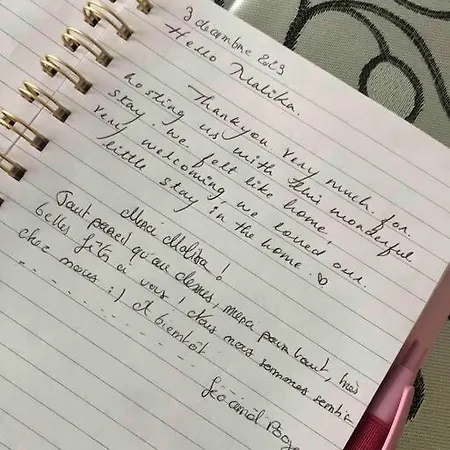 3 decembre 2023
Hello Malika.
Thank you very much for
hosting us with this wonderful
stay, we felt like home,
very welcoming, we loved our
little stay in the home. ♡
Merci Malika!
Tout pareil qu'au dessus, merci pour tout, très
belles fêtes à vous! Nous nous sommes sentis
chez nous :) A bientôt